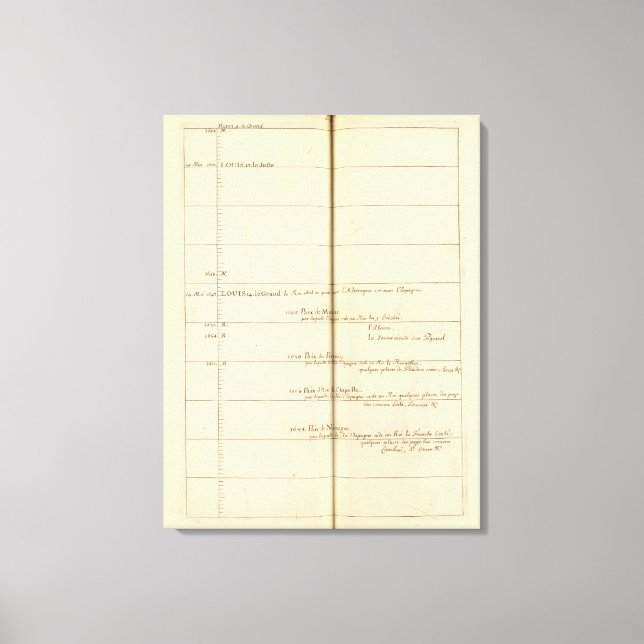 Henry 4. le Grand
1601. N.
14. May. 1610. LOUIS. 13. le Juste
1638. N.
14. May. 1643. LOUIS. 14. le Grand le Roy étoit en guerre avec l'Alemagne et avec l'Espagne.
1648 Paix de Munster
par laquelle l'Empire cede au Roi les 3. Evêchés
l'Alsace.
1654. R.
La Souveraineté sur Pignerol
1659. Paix des Pirenées
par laquelle l'Espagne cede au Roi le Roussillon,
1661. R.
quelques places de Flandres comme Arras &c
1668 Paix d'Aix la Chapelle.
par laquelle l'Espagne cede au Roi quelques places du pays
bas comme Lisle, Tournai &c
Paix de Nimegue.
par laquelle l'Espagne cede au Roi la Franche Comté.
quelques places du pays bas comme
Cambrai, St. Omer &c.